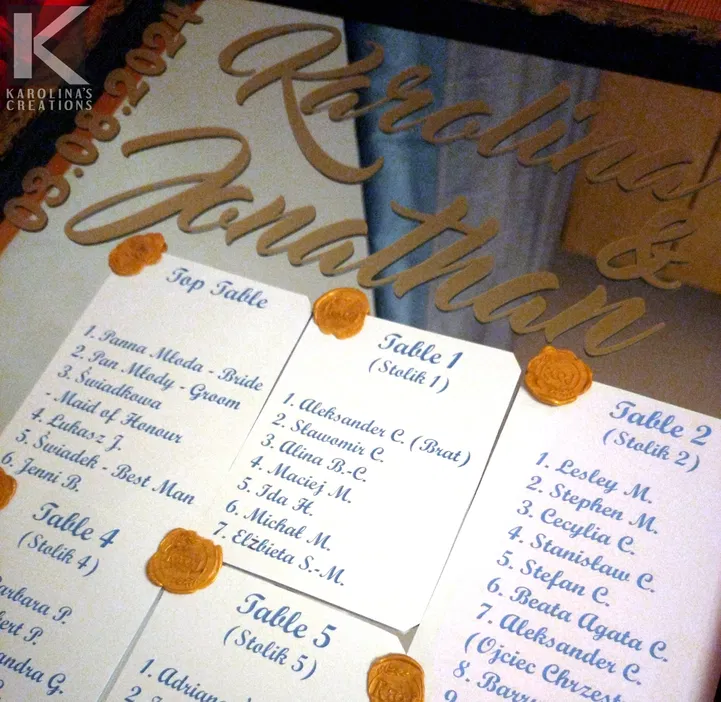 K
KAROLINA'S
CREATIONS
03.08.2024
Karolina
&
Jonathan
Top Table
1. Panna Młoda - Bride
2. Pan Młody - Groom
3. Świadkowa
- Maid of Honour
4. Łukasz J.
5. Świadek - Best Man
6. Jenni B.
Table 1
(Stolik 1)
1. Aleksander C. (Brat)
2. Sławomir C.
3. Alina B.-C.
4. Maciej M.
5. Ida H.
6. Michał M.
7. Elżbieta S.-M.
Table 2
(Stolik 2)
1. Lesley M.
2. Stephen M.
3. Cecylia C.
4. Stanisław C.
5. Stefan C.
6. Beata Agata C.
7. Aleksander C.
(Ojciec Chrzest
8. Barry
9.
Table 4
(Stolik 4)
arbara P.
ert P.
andra G.
Table 5
(Stolik 5)
1. Adriana